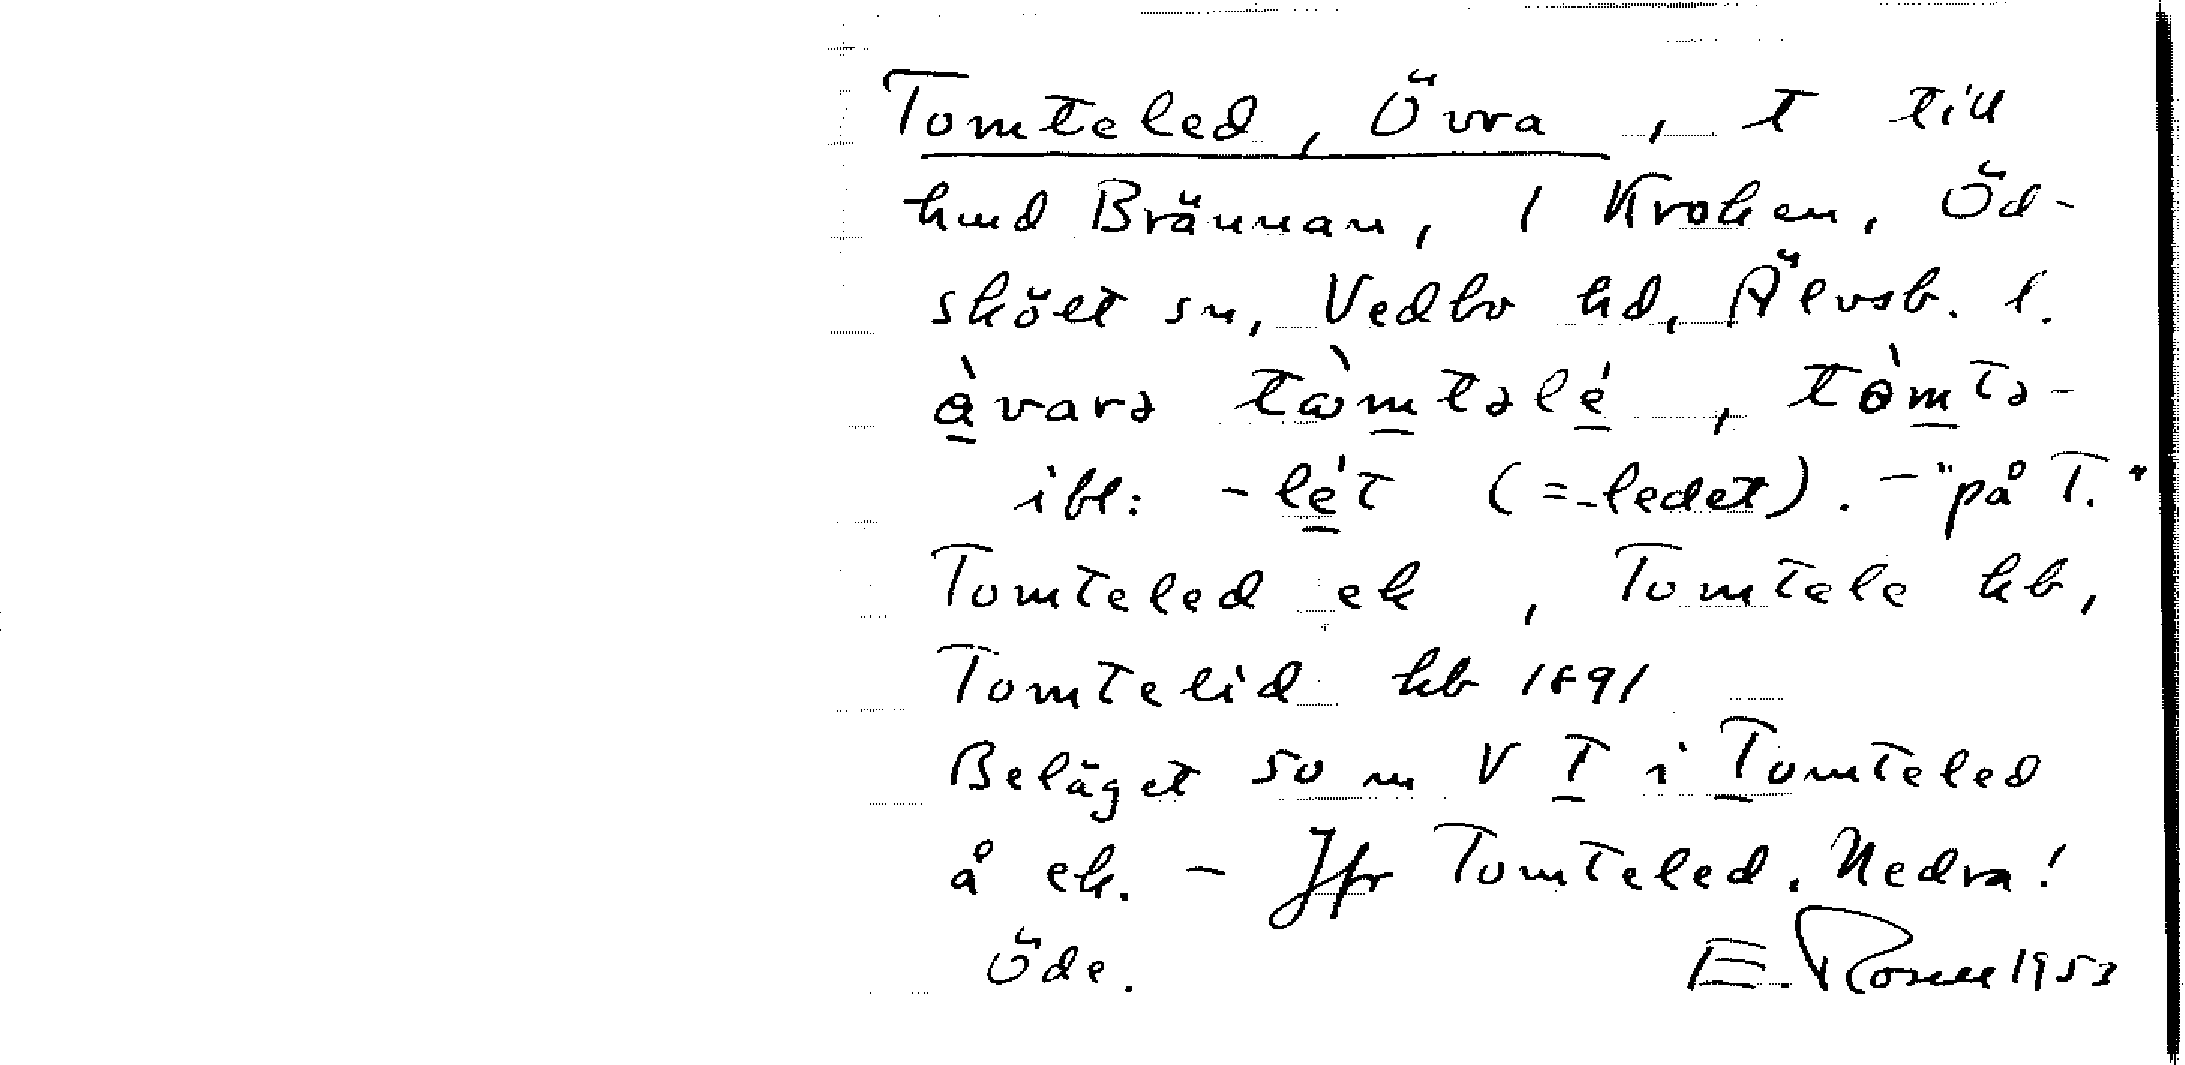 Tomteled, Övra, t till
hmd Brännan, 1 Kroken, Öd-
sköлt sn, Vedbo hd, Älvsb. l.
ə̀varə tὼmtəlé, tòmtə-
ibl: -lét (=-ledet). - "på T."
Tomteled ek, Tomtele kb,
Tomtelid kb 1891
Beläget som V T i Tomteled
å ek. - Jfr Tomteled, Nedra!
Öde. E. Rosell 1953